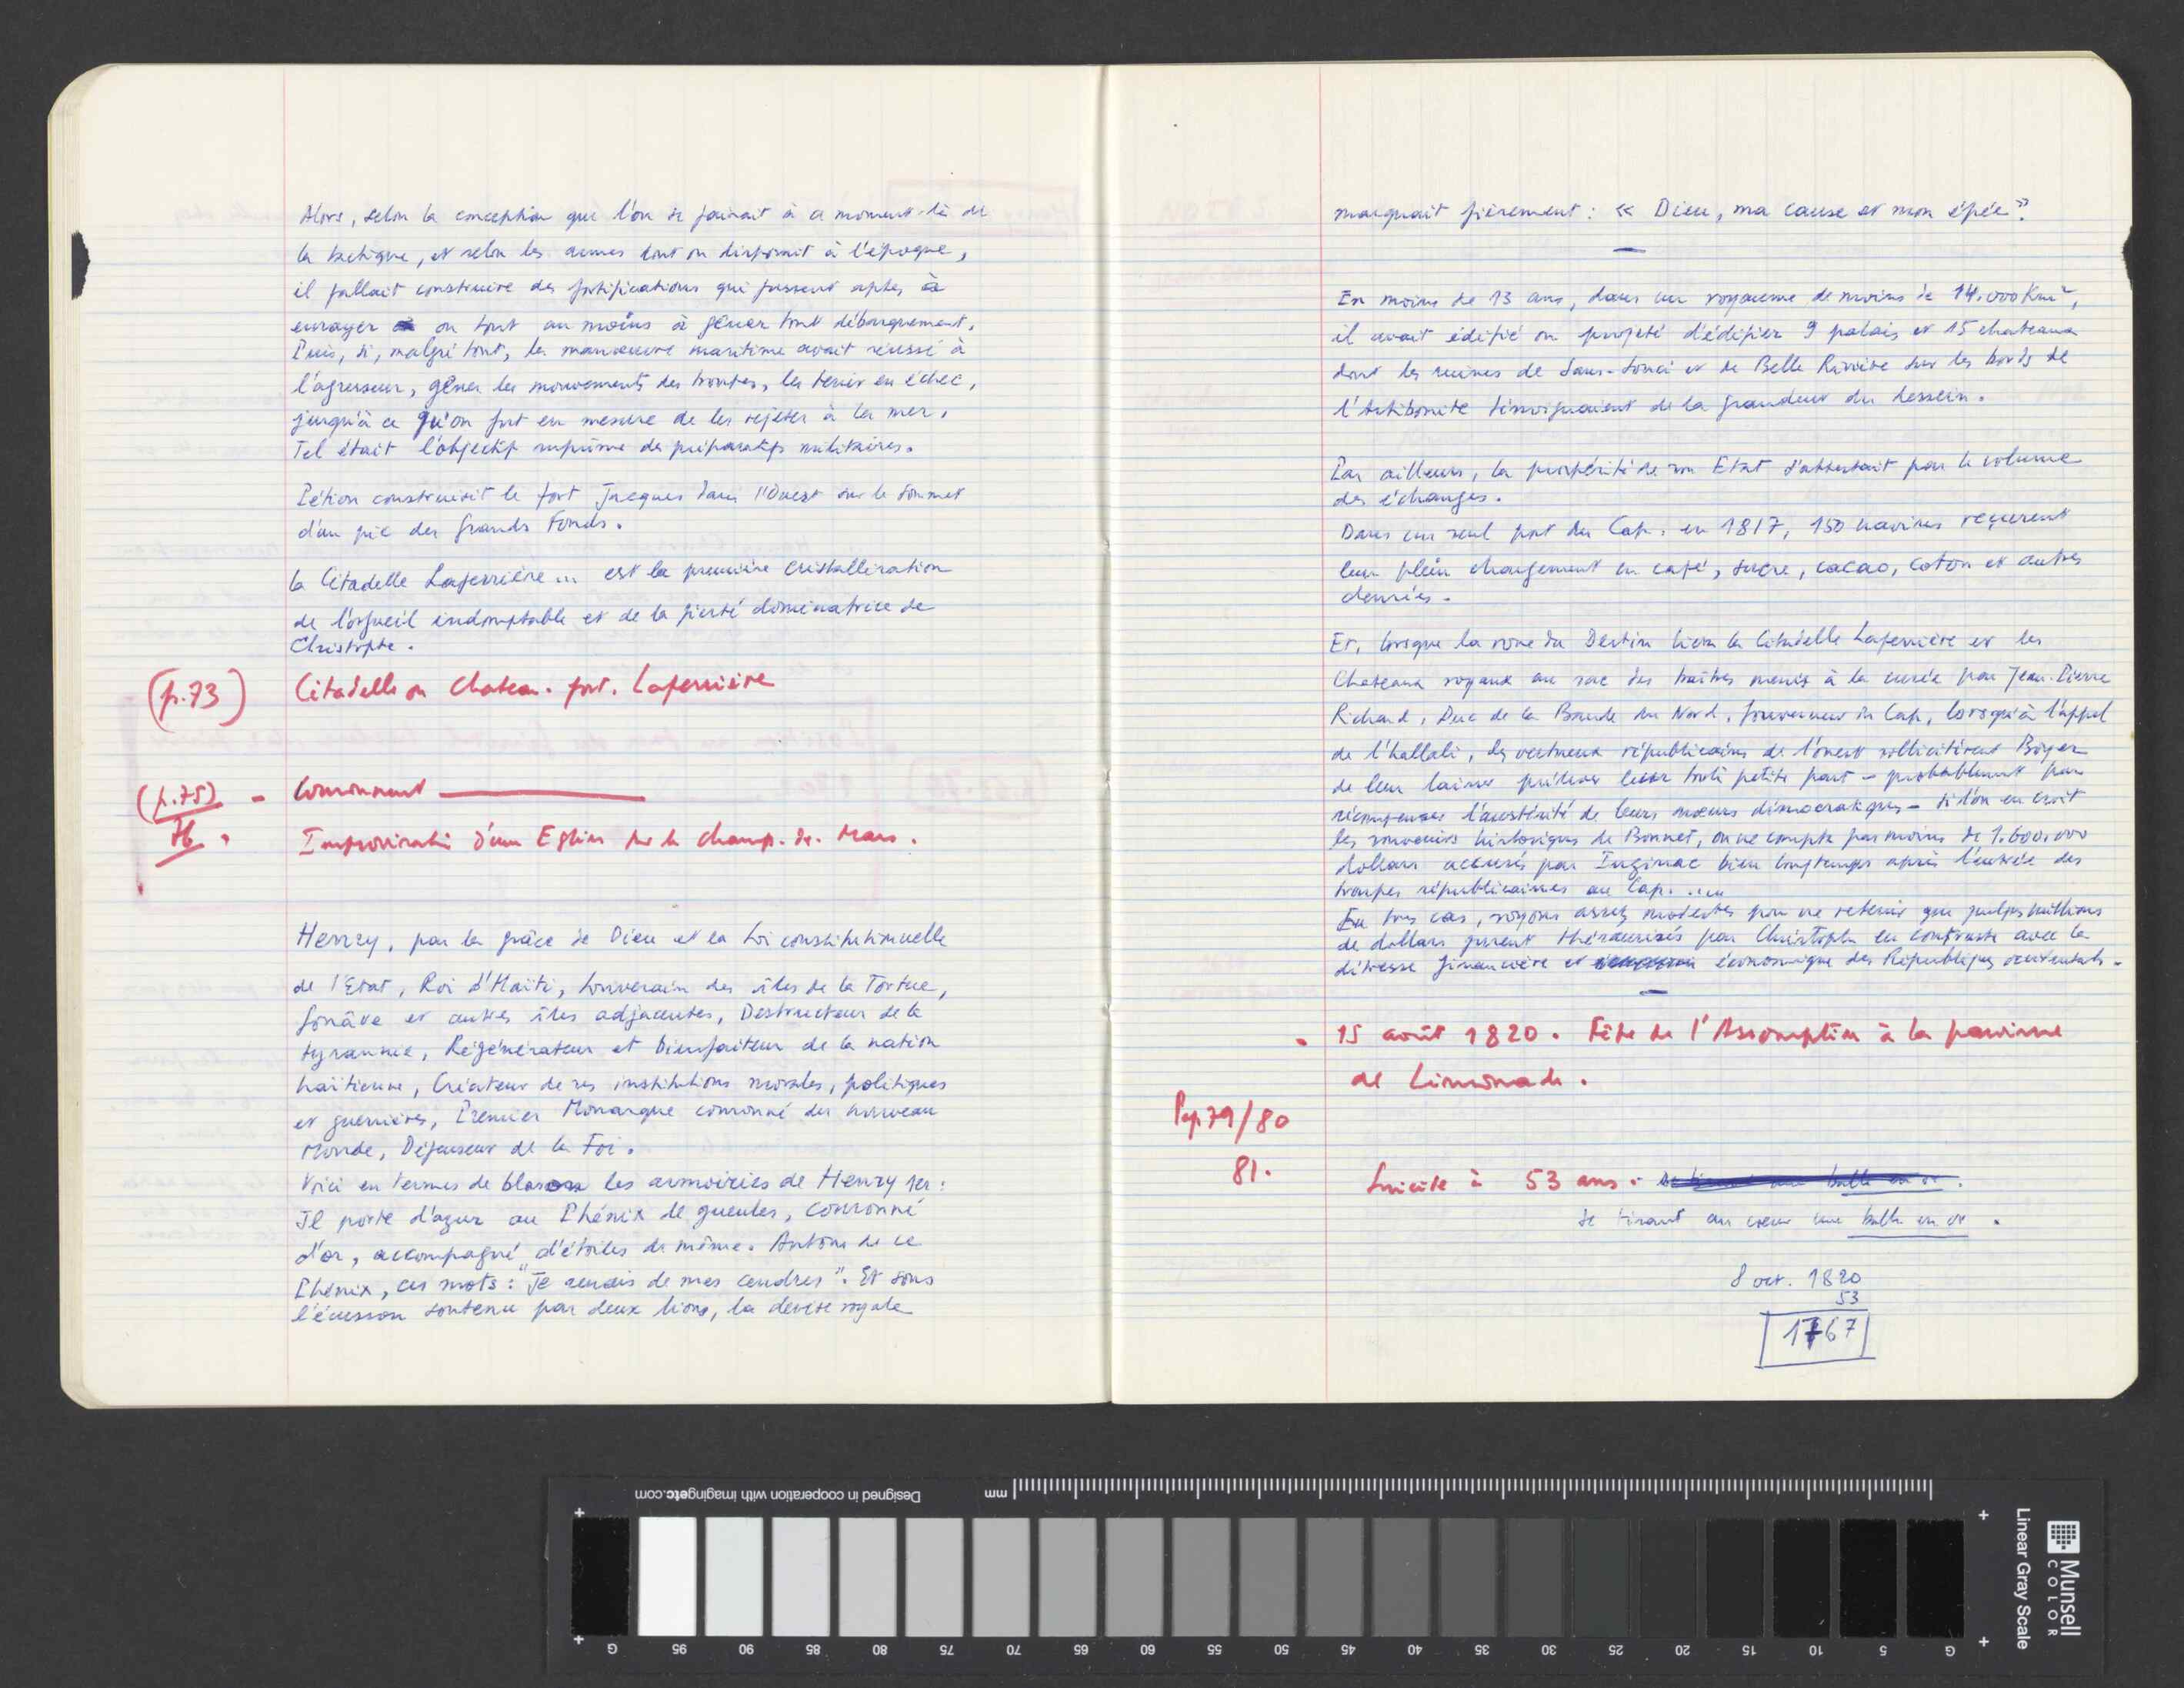 Alors, selon la conception que l'on se faisait à ce moment-là de
la tactique, et selon les armes dont on disposait à l'époque,
il fallait construire des fortifications qui fussent aptes à
enrayer ou tout au moins à gêner tout débarquement.
Puis, si, malgré tout, la manoeuvre maritime avait réussi à
l'agresseur, gêner les mouvements des troupes, les tenir en échec,
jusqu'à ce qu'on fut en mesure de les rejeter à la mer.
Tel était l'objectif suprême des préparatifs militaires.
Pétion construisit le fort Jacques dans l'Ouest sur le sommet
d'un pic des Grands Fonds.
la Citadelle Laferrière... est la première cristallisation
de l'orgueil indomptable et de la fierté dominatrice de
Christophe.
(p.73) Citadelle ou Chateau-fort. Laferrière
(p.75) - Couronnement
76 Improvisation d'une Eglise sur le champ-de-Mars.
Henry, par la grâce de Dieu et la Loi constitutionnelle
de l'Etat, Roi d'Haïti, Souverain des îles de la Tortue,
Gonâve et autres îles adjacentes, Destructeur de la
tyrannie, Régénérateur et bienfaiteur de la nation
haïtienne, Créateur de ses institutions morales, politiques
et guerrières, Premier Monarque couronné du nouveau
Monde, Défenseur de la Foi.
Voici en termes de blason les armoiries de Henry 1er :
Il porte d'azur au Phénix de gueules, couronné
d'or, accompagné d'étoiles de même. Autour de ce
Phénix, ces mots : "Je renais de mes cendres". Et sous
l'écusson soutenu par deux lions, la devise royale
marquait fièrement : « Dieu, ma cause et mon épée".
En moins de 13 ans, dans un royaume de moins de 14.000 Km²,
il avait édifié ou projeté d'édifier 9 palais et 15 chateaux
dont les ruines de Sans-Souci et de Belle Rivière sur les bords de
l'Artibonite témoignaient de la grandeur du dessein.
Par ailleurs, la prospérité de son Etat s'attestait par le volume
des échanges.
Dans un seul port du Cap, en 1817, 150 navires reçurent
leur plein chargement en café, sucre, cacao, coton et autres
denrées.
Et, lorsque la roue du Destin livra la Citadelle Laferrière et les
Chateaux royaux au sac des traîtres menés à la curée par Jean-Pierre
Richard, Duc de la Bande du Nord, Gouverneur du Cap, lorsqu'à l'appel
de l'hallali, les vertueux républicains de l'ouest sollicitèrent Boyer
de leur laisser prélever leur toute petite part - probablement pour
récompenser l'austérité de leurs moeurs démocratiques - si l'on en croit
les souvenirs historiques de Bonnet, on ne compta pas moins de 1.600.000
dollars accusés par Inginac bien longtemps après l'entrée des
troupes républicaines au Cap. ....
En tous cas, soyons assez modestes pour ne retenir que quelques millions
de dollars furent thésaurisés par Christophe en contraste avec la
détresse financière et économique des Républiques occidentales.
- 15 août 1820. Fête de l'Assomption à la paroisse
de Limonade.
Pp. 79/80
81.
Suicide à 53 ans.
Se tirant au coeur une balle en or.
8 oct. 1820
53
1767
Designed in cooperation with imagingetc.com
mm
G 95 90 85 80 75 70 65 60 55 50 45 40 35 30 25 20 15 10 5 G
Munsell
COLOR
Linear Gray Scale